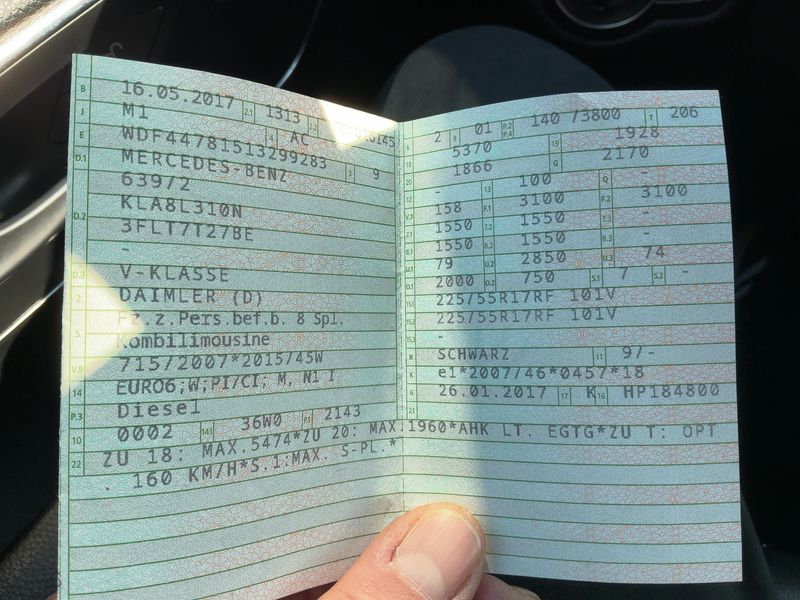 B 16.05.2017 2.1 1313 2.2
J M1 4 AC
E WDF44781513299283 3 9
D.1 MERCEDES-BENZ
639/2
D.2 KLA8L310N
3FLT7T27BE
-
D.3 V-KLASSE
2 DAIMLER (D)
5 Fz.z.Pers.bef.b. 8 Spl.
Kombilimousine
V.9 715/2007*2015/45W
14 EURO6;W;PI/CI; M, N1 I
P.3 Diesel
10 0002 14.1 36W0 P.1 2143
22 ZU 18: MAX.5474*ZU 20: MAX.1960*AHK LT. EGTG*ZU T: OPT
. 160 KM/H*S.1:MAX. S-PL.*
L 2 9 01 P.2 P.4 140 /3800 T 206
18 5370 19 1928
20 1866 G 2170
12 - 13 100 Q -
V.7 158 F.1 3100 F.2 3100
7.1 1550 7.2 1550 7.3 -
8.1 1550 8.2 1550 8.3 -
U.1 79 U.2 2850 U.3 74
O.1 2000 O.2 750 S.1 7 S.2 -
15.1 225/55R17RF 101V
15.2 225/55R17RF 101V
15.3 -
R SCHWARZ 11 9/-
K e1*2007/46*0457*18
6 26.01.2017 17 K 16 HP184800
21